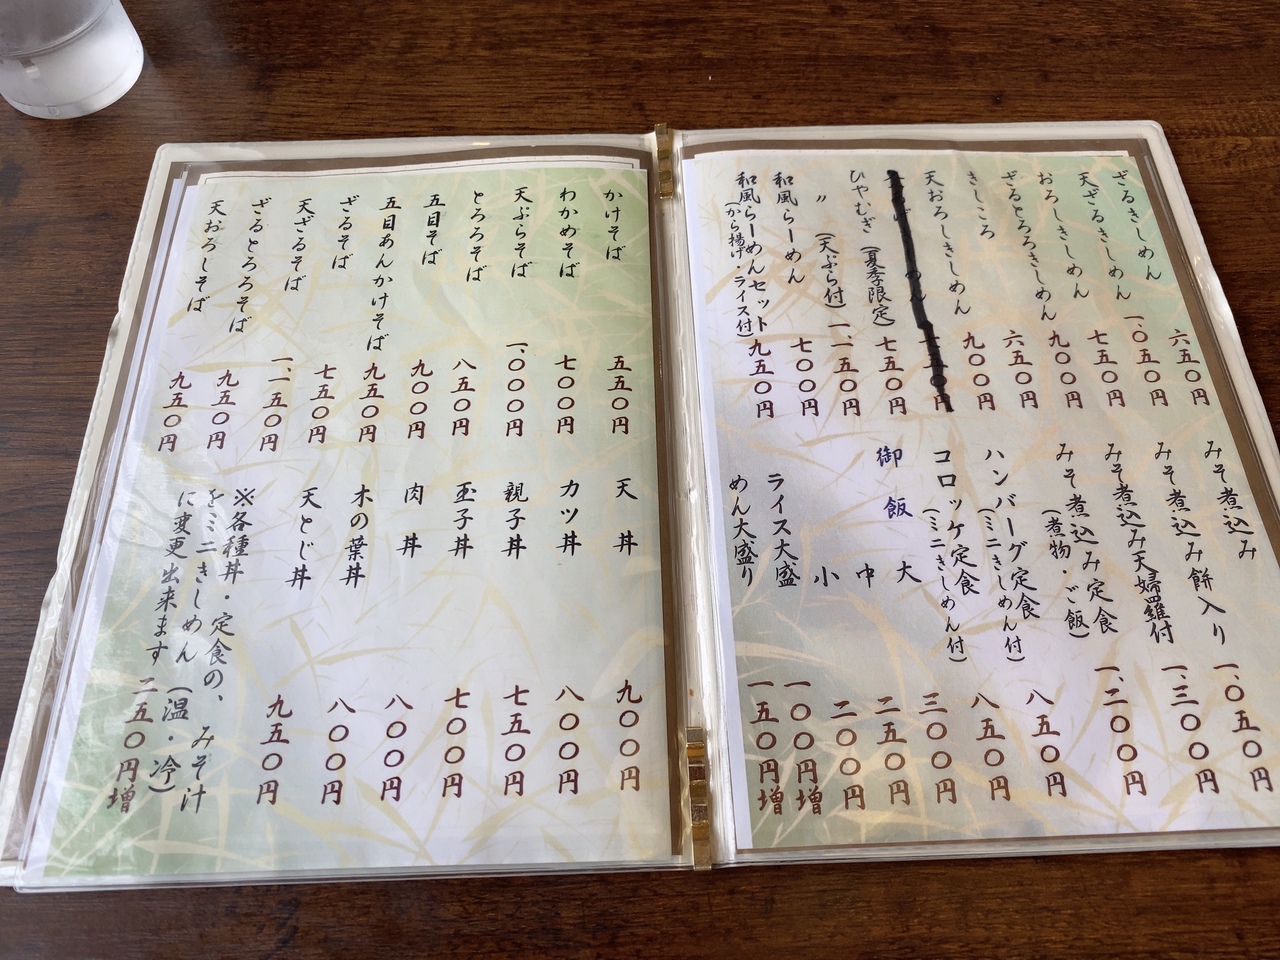 ざるきしめん 六五〇円
天ざるきしめん 一、〇五〇円
おろしきしめん 七五〇円
ざるとろろきしめん 九〇〇円
きしころ 六五〇円
天おろしきしめん 九〇〇円
ひやむぎ (夏季限定) 七五〇円
〃 (天ぷら付) 一、一五〇円
和風らーめん 七〇〇円
和風らーめんセット 九五〇円
(から揚げ・ライス付)
みそ煮込み 一、〇五〇円
みそ煮込み餅入り 一、三〇〇円
みそ煮込み天婦羅付 一、二〇〇円
みそ煮込み定食
(煮物・ご飯)
ハンバーグ定食 八五〇円
(ミニきしめん付)
コロッケ定食 八五〇円
(ミニきしめん付)
御飯 大 三〇〇円
中 二五〇円
小 二〇〇円
ライス大盛 一〇〇円増
めん大盛り 一五〇円増
かけそば 五五〇円
わかめそば 七〇〇円
天ぷらそば 一、〇〇〇円
とろろそば 八五〇円
五目そば 九〇〇円
五目あんかけそば 九五〇円
ざるそば 七五〇円
天ざるそば 一、一五〇円
ざるとろろそば 九五〇円
天おろしそば 九五〇円
天丼 九〇〇円
カツ丼 八〇〇円
親子丼 七五〇円
玉子丼 七〇〇円
肉丼 八〇〇円
木の葉丼 八〇〇円
天とじ丼 九五〇円
※各種丼・定食の、みそ汁
をミニきしめん(温・冷)
に変更出来ます 二五〇円増